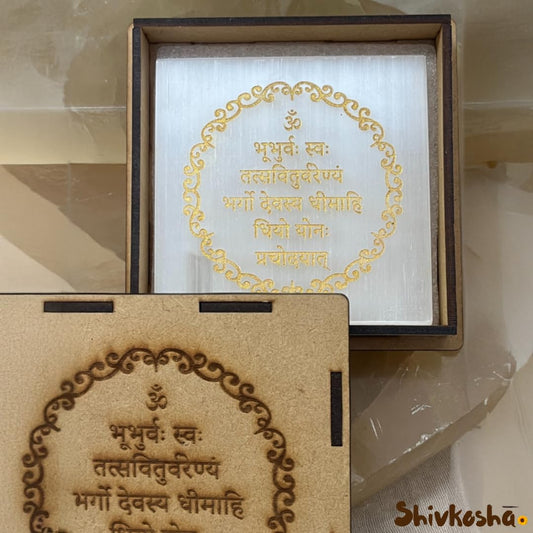 ॐ
भूभुर्वः स्वः
तत्सवितुर्वरेण्यं
भर्गो देवस्य धीमाहि
धियो योनः
प्रचोदयात्
ॐ
भूभुर्वः स्वः
तत्सवितुर्वरेण्यं
भर्गो देवस्य धीमाहि
Shivkosha